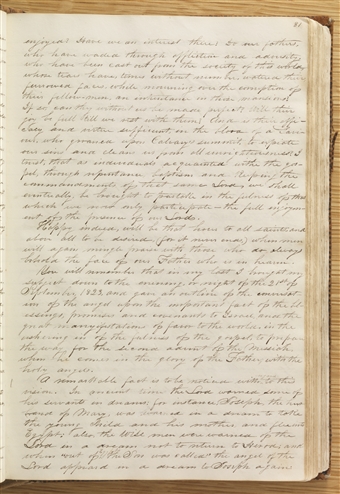 81
enjoyed! Have we an interest there? Do our fathers,
who have waded through affliction and adversity,
who have been cast out from the society of this world,
whose tears have, times without number, watered their
furrowed face, while mourning over the corruption of
their fellow men, an inheritance in those mansions?
If so can they without us be made perfect? Will their
joy be full till we rest with them? And is their effi-
cacy and virtue sufficient, in the blood of a
one, who groaned upon Calvary's summit, to expiate
our sins and cleanse us from all unrighteousness? I
trust, that as individuals acquainted with the gos-
pel, through repentance, baptism and keeping the
commandments of that same Lord, we shall
eventually, be brought to partake in the fulness of that
which we now only participate—the full enjoy-
ment of the presence of our Lord.
Happy indeed, will be that hour to all the saints, and
above all to be desired, (for it man, when man
will again mingle praise with those who do always
behold the face of our Father who is in heaven.
You will remember that in my last I brought my
subject down to the evening, or night of the 21st of
September 1823, and gave an outline of the conversat-
ion of the angel upon the important fact of the bl-
essings, promises and covenants to Israel, and the
great manifestations of favor to the world, in the
ushering in of the fulness of the gospel, to prepare
the way for the second advent of the Messiah,
when he comes in the glory of the Father with the
holy angels.
A remarkable fact is to be noticed with to this
vision. In ancient time the Lord warned some of
his servants in dreams: for instance, Joseph, the hus-
band of Mary, was warned in a dream to take
the young child and his mother, and flee into
Egypt: also, the wise men were warned of the
Lord in a dream not to return to Herod; and
when "out of the Son was called" the angel of the
Lord appeared in a dream to Joseph again